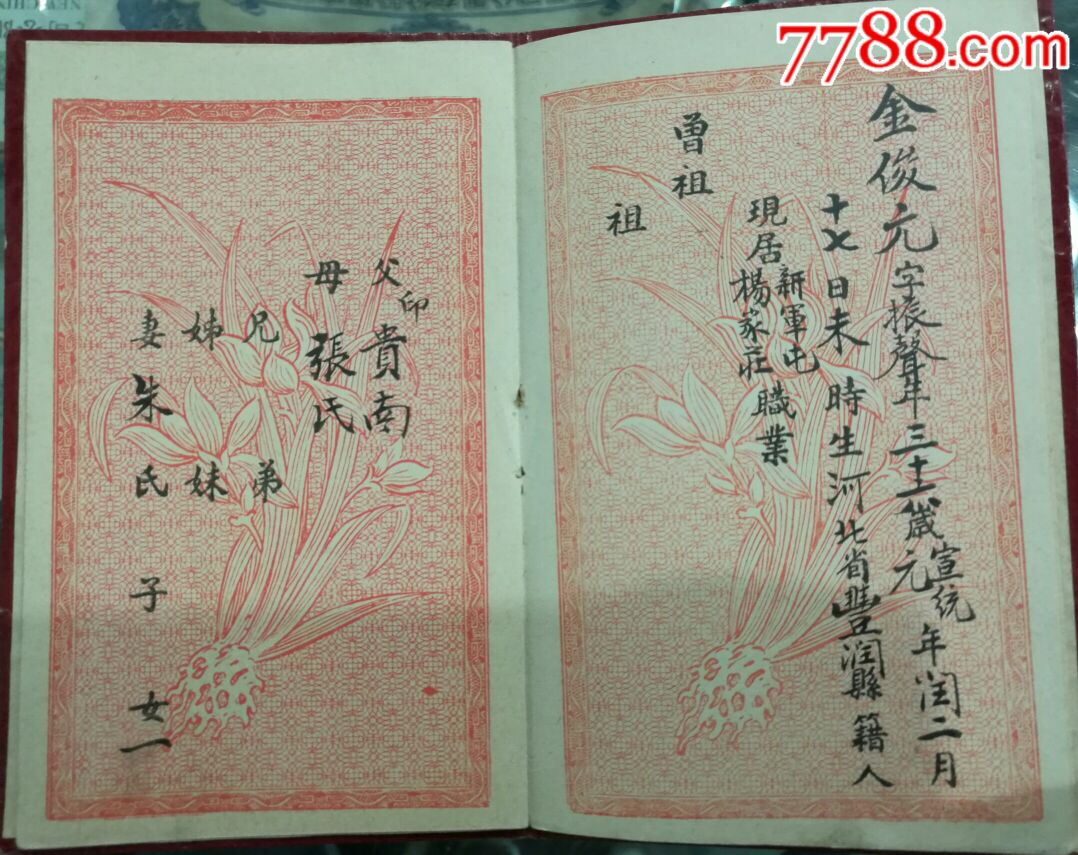 7788.com
金俊元字振聲年三十一歲宣統元年閏二月
十七日未時生河北省豐潤縣籍人
現居新軍屯楊家莊職業
曾祖
祖
父印貴南
母張氏
兄 弟
姊 妹
妻朱氏 子 女一